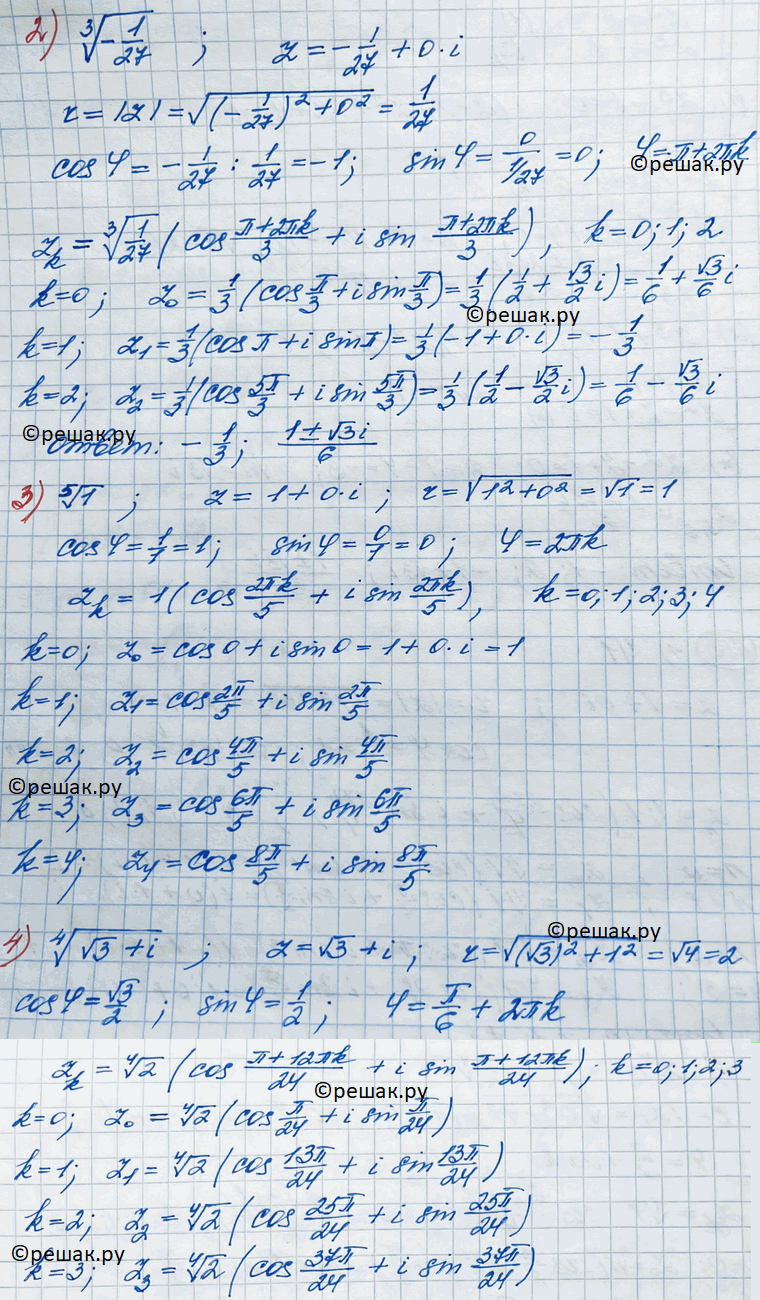 2) ∛(-1/27) ; z = -1/27 + 0·i
r = |z| = √((-1/27)² + 0²) = 1/27
cos φ = -1/27 : 1/27 = -1; sin φ = 0/(1/27) = 0; φ = π+2πk
©решак.ру
z_k = ∛(1/27) (cos (π+2πk)/3 + i sin (π+2πk)/3), k=0; 1; 2
k=0; z₀ = 1/3 (cos π/3 + i sin π/3) = 1/3 (1/2 + √3/2 i) = 1/6 + √3/6 i
©решак.ру
k=1; z₁ = 1/3 (cos π + i sin π) = 1/3 (-1+0·i) = -1/3
k=2; z₂ = 1/3 (cos 5π/3 + i sin 5π/3) = 1/3 (1/2 - √3/2 i) = 1/6 - √3/6 i
©решак.ру
ответ: -1/3; (1±√3i)/6
3) ⁵√1 ; z = 1+0·i ; r = √(1²+0²) = √1 = 1
cos φ = 1/1 = 1; sin φ = 0/1 = 0; φ = 2πk
z_k = 1(cos 2πk/5 + i sin 2πk/5), k=0; 1; 2; 3; 4
k=0; z₀ = cos 0 + i sin 0 = 1+0·i = 1
k=1; z₁ = cos 2π/5 + i sin 2π/5
k=2; z₂ = cos 4π/5 + i sin 4π/5
©решак.ру
k=3; z₃ = cos 6π/5 + i sin 6π/5
k=4; z₄ = cos 8π/5 + i sin 8π/5
©решак.ру
4) ⁴√(√3+i) ; z = √3+i ; r = √((√3)²+1²) = √4 = 2
cos φ = √3/2 ; sin φ = 1/2 ; φ = π/6 + 2πk
z_k = ⁴√2 (cos (π+12πk)/24 + i sin (π+12πk)/24); k=0; 1; 2; 3
©решак.ру
k=0; z₀ = ⁴√2 (cos π/24 + i sin π/24)
k=1; z₁ = ⁴√2 (cos 13π/24 + i sin 13π/24)
k=2; z₂ = ⁴√2 (cos 25π/24 + i sin 25π/24)
©решак.ру
k=3; z₃ = ⁴√2 (cos 37π/24 + i sin 37π/24)